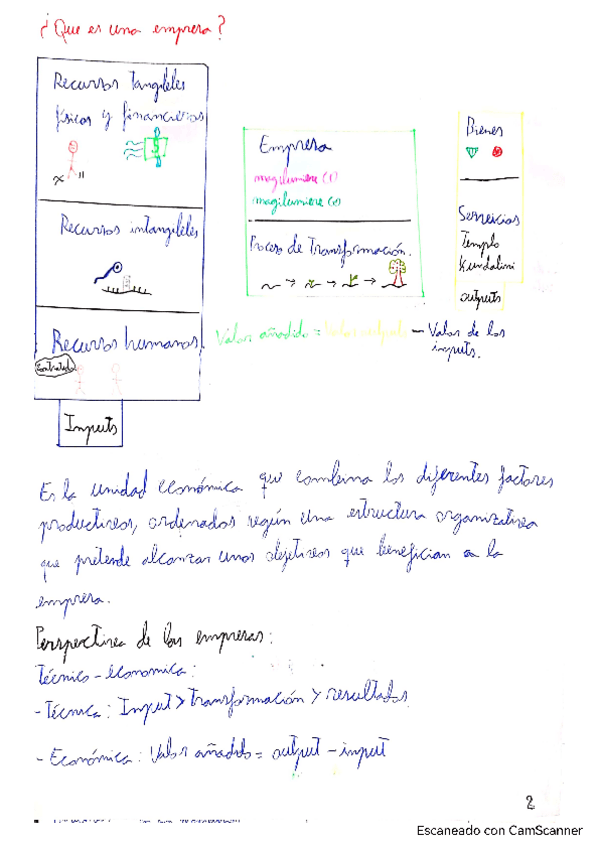 ¿Que es una empresa?
Recursos tangibles
físicos y financieros
Recursos intangibles
Recursos humanos
Contratado
Inputs
Empresa
magilumiere (1)
magilumiere (2)
Proceso de Transformación.
Bienes
Servicios
Templo
Kundalini
outputs
Valor añadido = Valor outputs - Valor de los
inputs.
Es la unidad económica que combina los diferentes factores
productivos, ordenados según una estructura organizativa
que pretende alcanzar unos objetivos que benefician a la
empresa.
Perspectiva de las empresas:
Técnico-economica:
- Técnica: Input > transformación > resultados
- Económica: Valor añadido = output - input
2
Escaneado con CamScanner